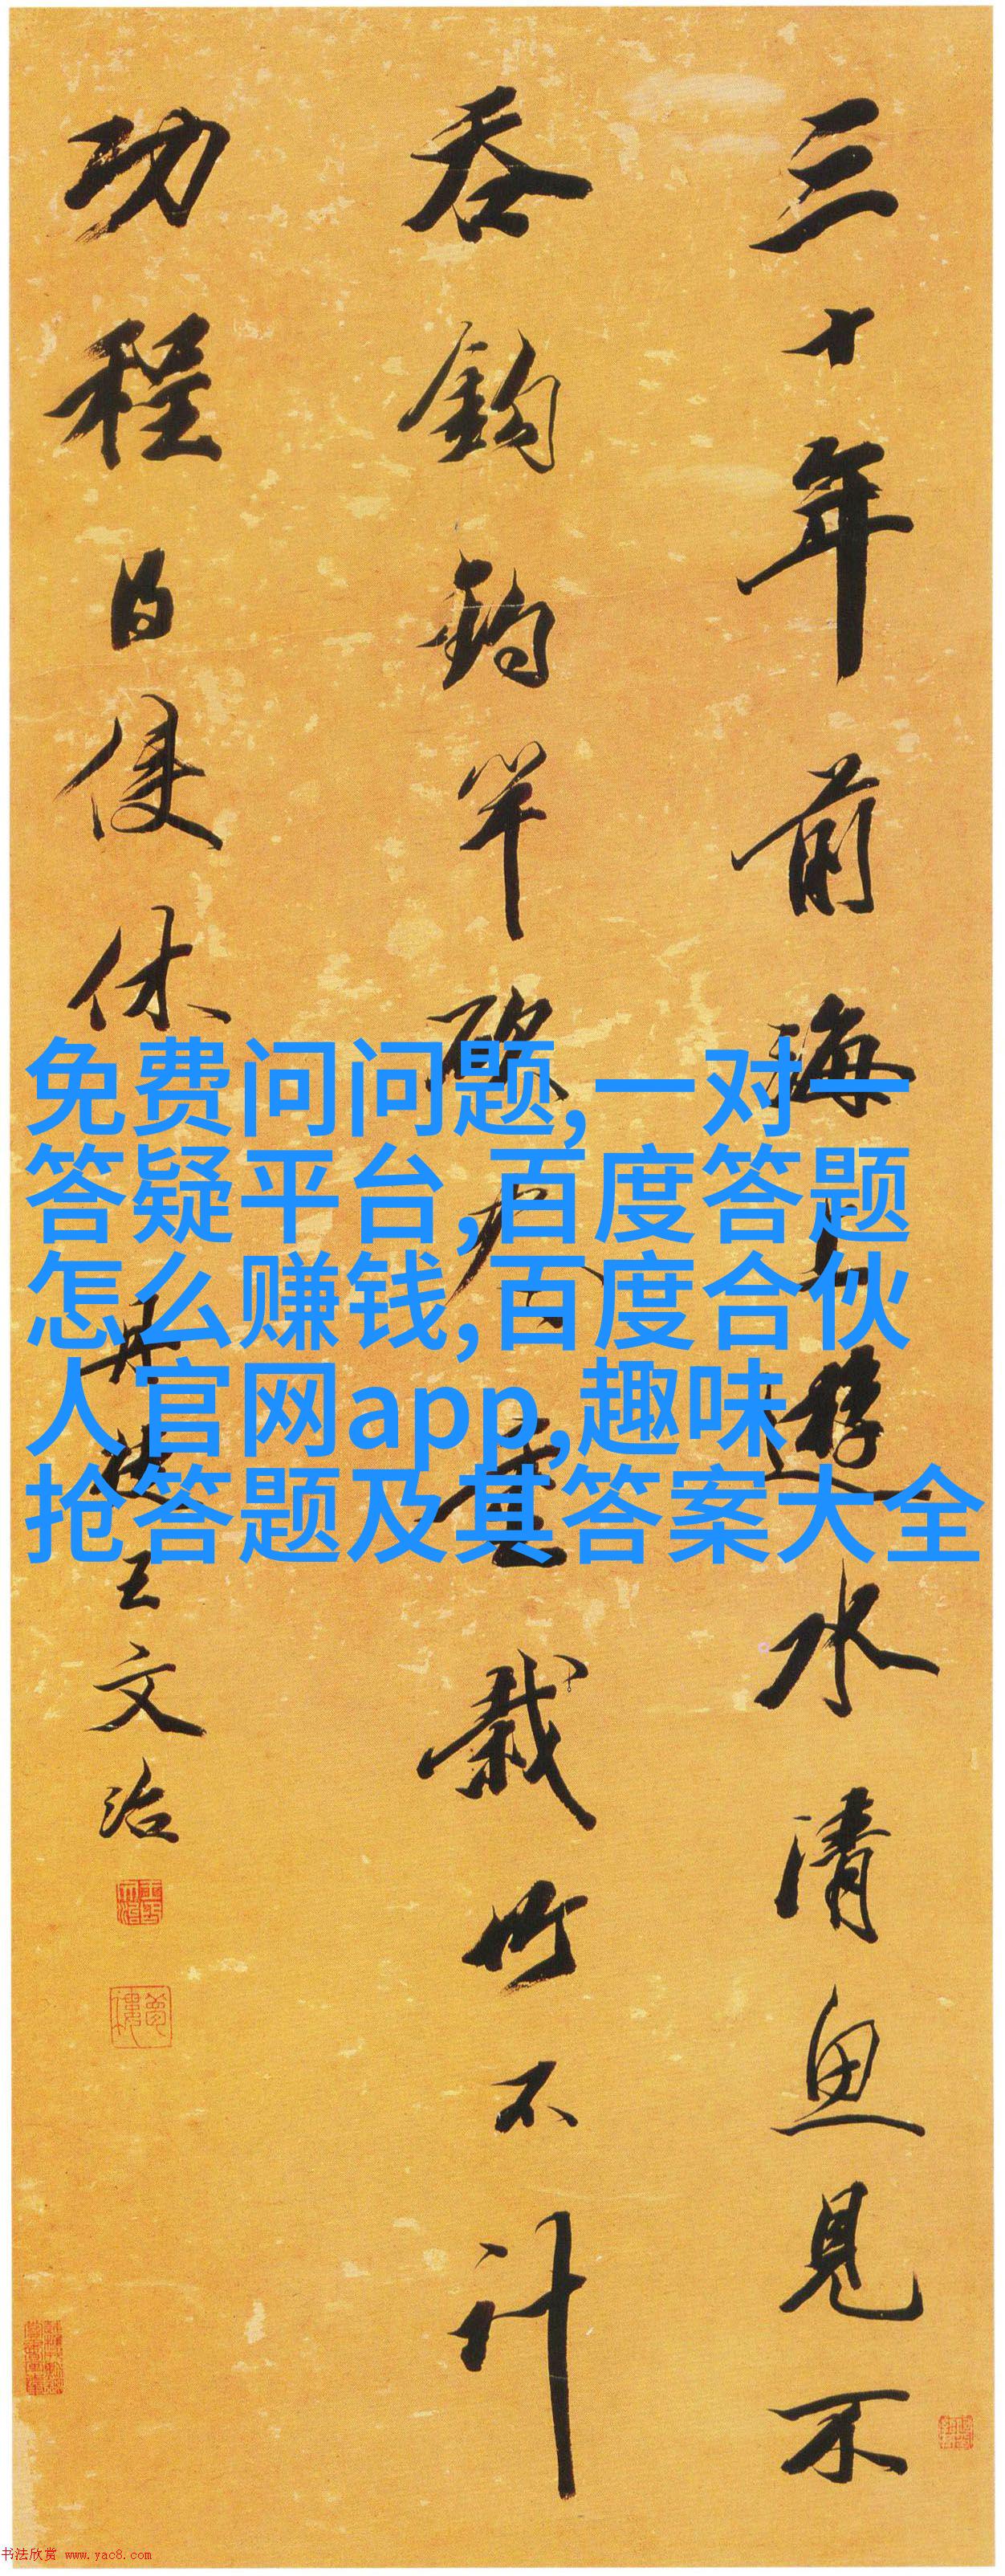 三十年前海上遊水清魚見不
吞鈎釣竿斫尽重栽竹不計
功程得便休
丹徒王文治
免费问问题,一对一
答疑平台,百度答题
怎么赚钱,百度合伙
人官网app,趣味
抢答题及其答案大全
书法欣赏 www.yac8.com